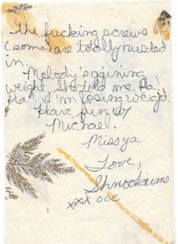 The fucking screws
(some are totally rusted
in.
Melody's gaining
weight. She told me. Ha!
Ha! I'm losing weight.
Have fun w/
Michael.
Miss ya
Love,
Shnookums
xxx ooo